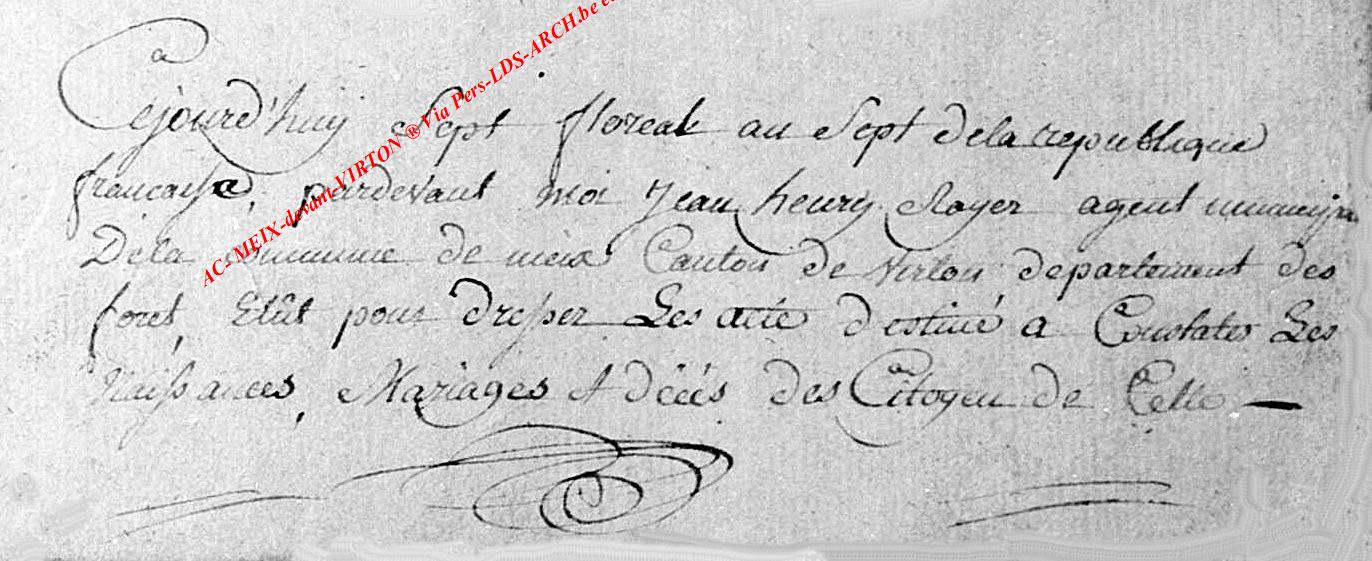 Cejourd'huy Sept floreal au Sept dela republique
francaisse, pardevant moi Jean henry Royer agent municipa
Dela commune de meix Canton de Virton departement des
foret, Elût pour dresser Les acte destiné a Constater Les
Naissances, Mariages Et décés des Citoyen de Celle —
AC- MEIX-devant-VIRTON ® Via Pers-LDS-ARCH.be